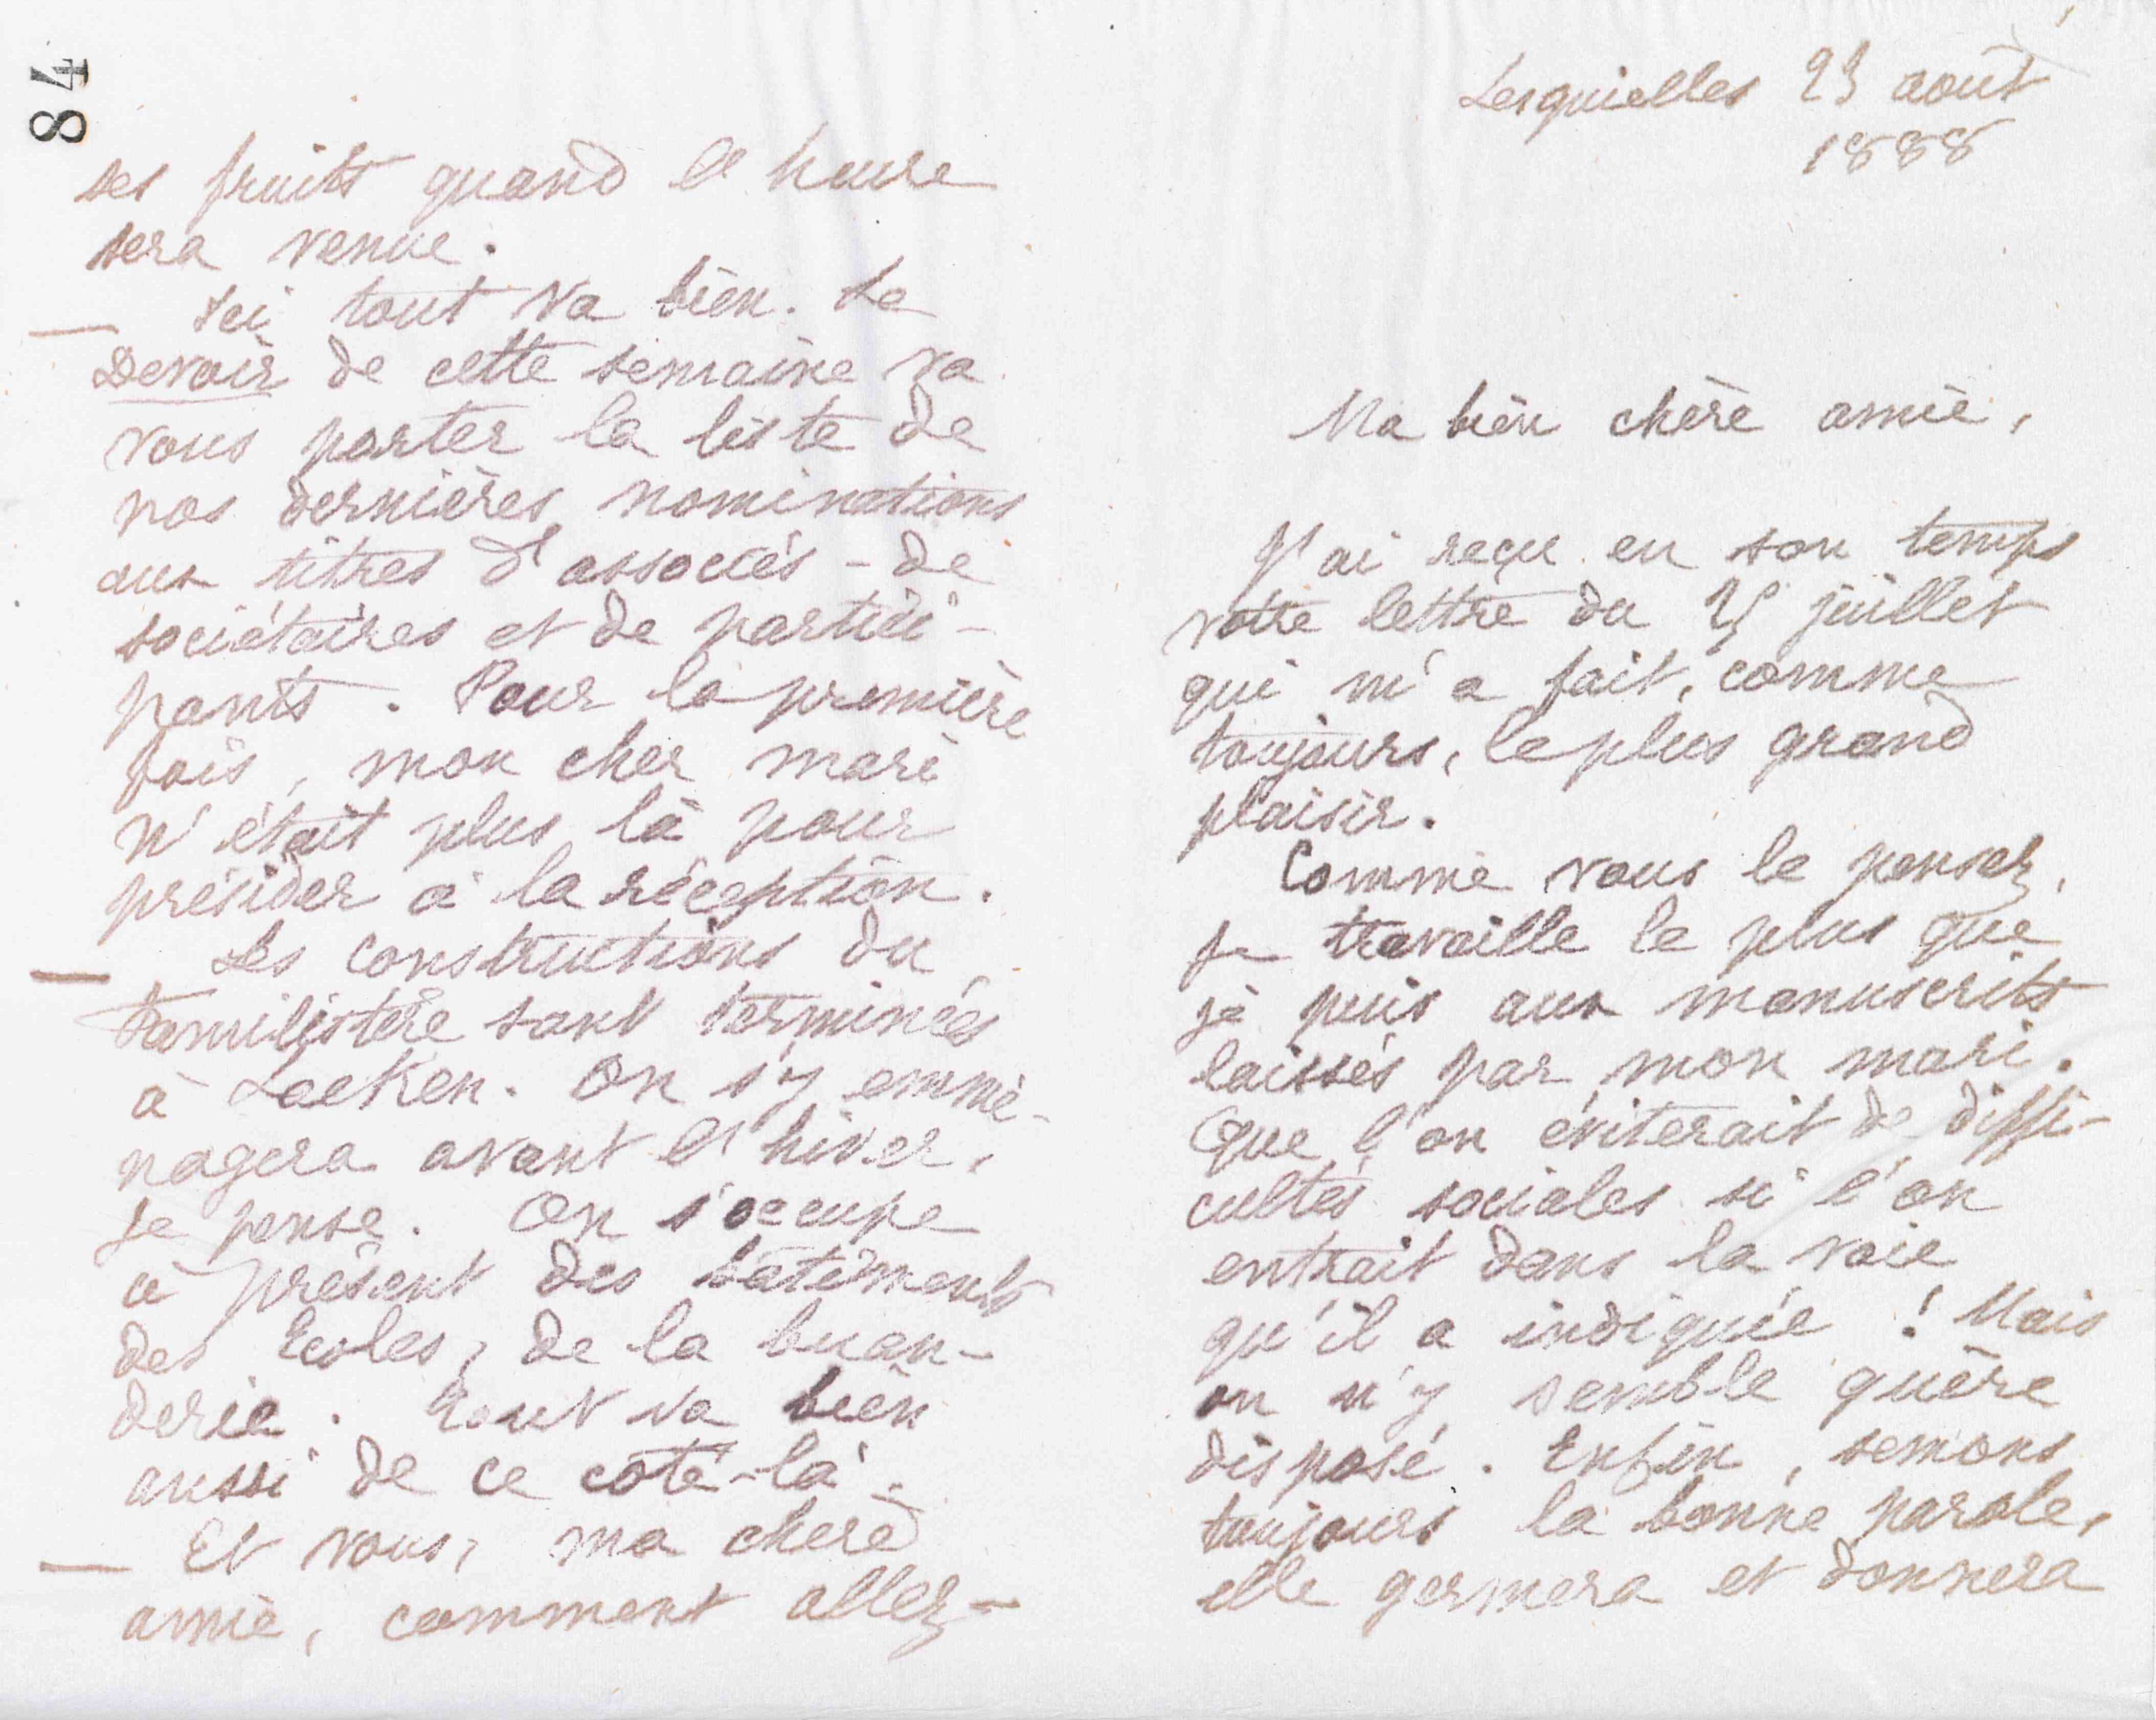 Lesquielles 23 août
1888
Ma bien chère amie,
J'ai reçu en son temps
votre lettre du 25 juillet
qui m'a fait, comme
toujours, le plus grand
plaisir.
Comme vous le pensez,
je travaille le plus que
je puis aux manuscrits
laissés par mon mari.
Que l'on éviterait de diffi-
cultés sociales si l'on
entrait dans la voie
qu'il a indiquée ! Mais
on n'y semble guère
disposé. Enfin, semons
toujours la bonne parole,
elle germera et donnera
84
ses fruits quand l'heure
sera venue.
— Ici tout va bien. Le
Devoir de cette semaine va
vous porter la liste de
nos dernières nominations
aux titres d'associés - de
sociétaires et de partici-
pants. Pour la première
fois, mon cher mari
n'était plus là pour
présider à la réception.
— Les constructions du
Familistère sont terminées
à Laeken. On s'y emmé-
nagera avant l'hiver,
je pense. On s'occupe
à présent des bâtiments
des Ecoles, de la buan-
derie. Tout va bien
aussi de ce côté-là.
— Et vous, ma chère
amie, comment allez-